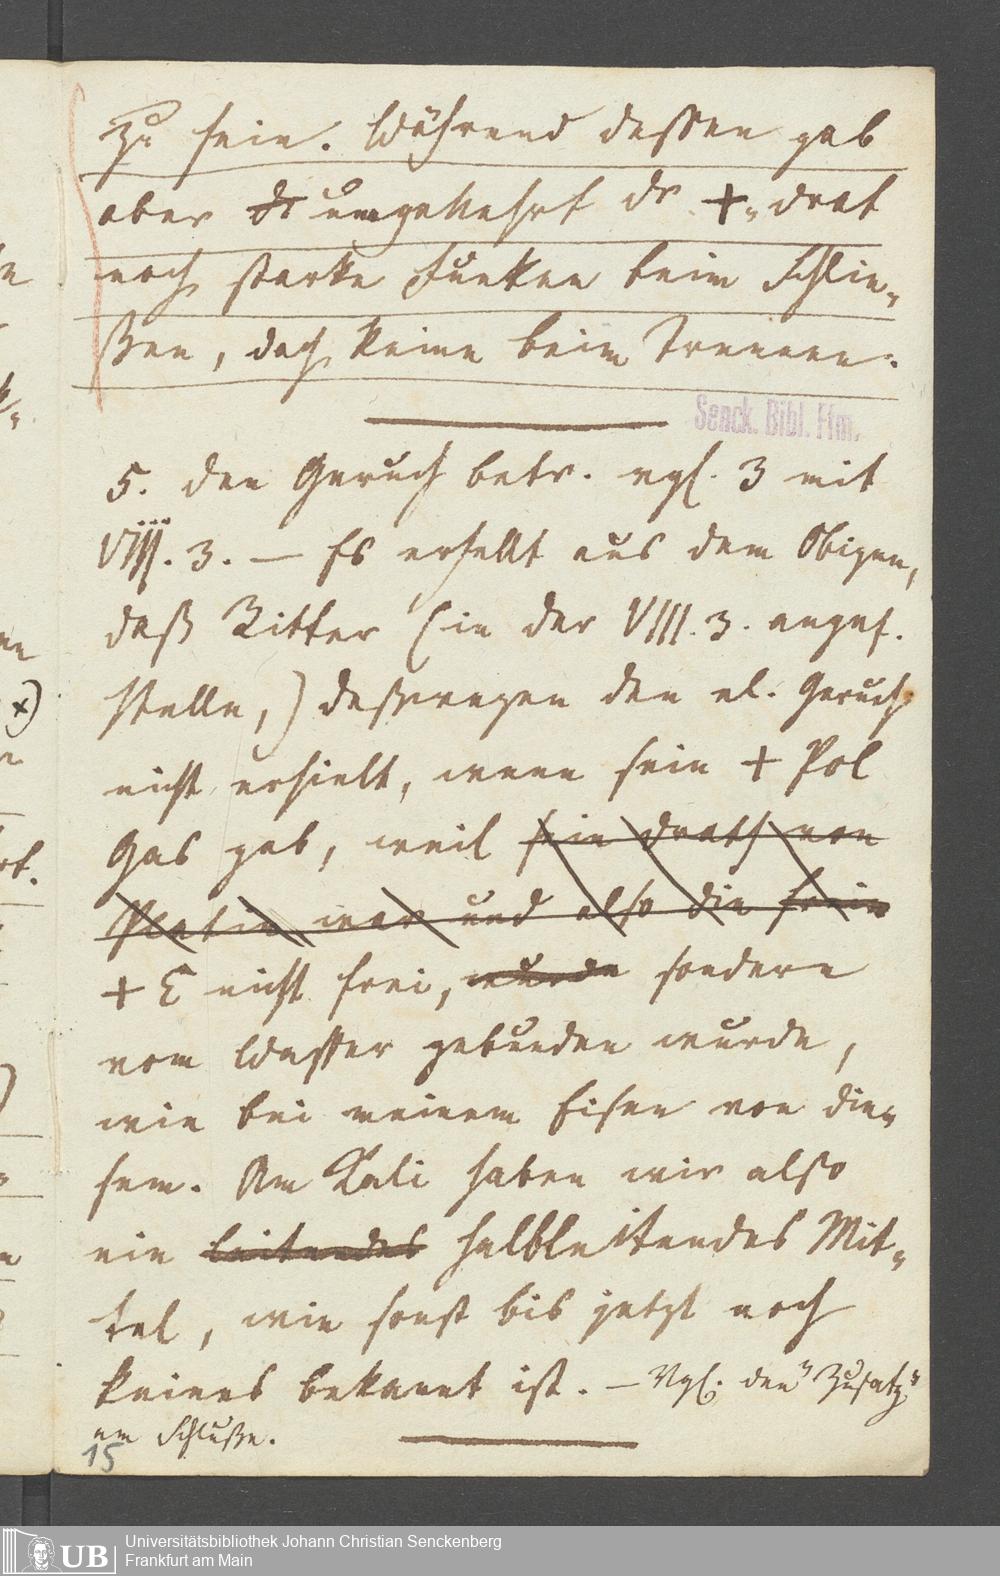 zu sein. Während dessen gab
aber ds umgekehrt ds +-drat
noch starke Funken beim Schlie-
ßen, doch keine beim Trennen.
Senck. Bibl. Ffm.
5. den Geruch betr. vgl. 3 mit
VIII. 3. — Es erhellt aus dem Obigen,
daß Ritter (in der VIII. 3. angef.
Stelle,) deßwegen den el. Geruch
nicht erhielt, wenn sein + Pol
Gas gab, weil sein Drath von
Platin war und also die freie
+ E nicht frei, wurde sondern
vom Wasser gebunden wurde,
wie bei meinem Eisen von die-
sem. Am Kali haben wir also
ein leitendes halbleitendes Mit-
tel, wie sonst bis jetzt noch
keines bekannt ist. — Vgl. den "Zusatz"
am Schluße.
15
UB
Universitätsbibliothek Johann Christian Senckenberg
Frankfurt am Main